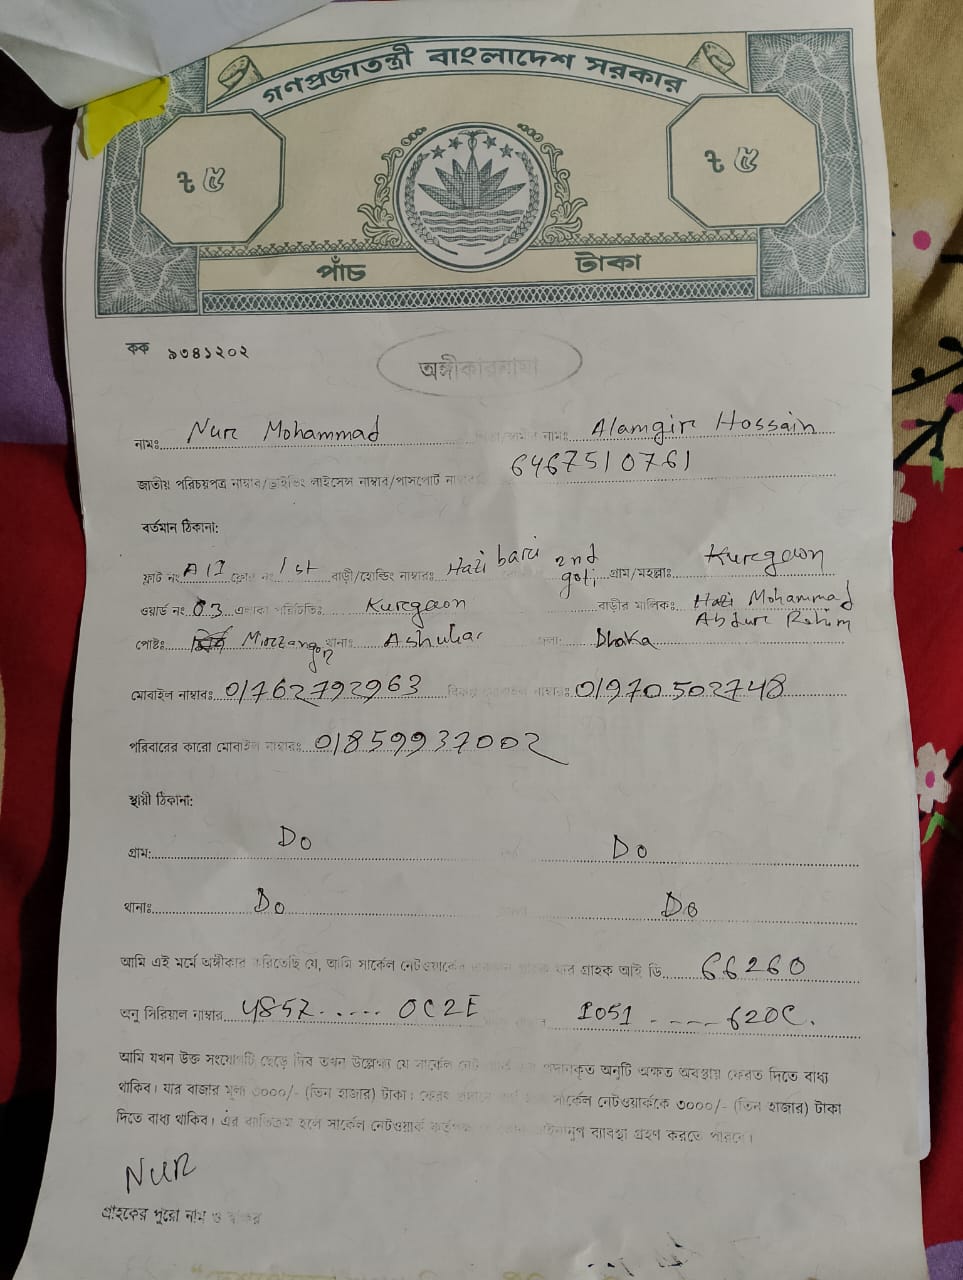 গণপ্রজাতন্ত্রী বাংলাদেশ সরকার
৳ ৫ ৳ ৫
পাঁচ টাকা
কক ৯৩৪১২০২
অঙ্গীকারনামা
নামঃ Nur Mohammad নামঃ Alamgir Hossain
জাতীয় পরিচয়পত্র নাম্বার/ড্রাইভিং লাইসেন্স নাম্বার/পাসপোর্ট 6467510761
বর্তমান ঠিকানা:
ফ্লাট নং A11 ফ্লোর নং 1st বাড়ী/হোল্ডিং নাম্বারঃ Hazi bari 2nd goli গ্রাম/মহল্লাঃ Kurgaon
ওয়ার্ড নং 03 এলাকা পরিচিতিঃ Kurgaon বাড়ীর মালিকঃ Hazi Mohammad Abdur Rohim
পোষ্টঃ থানাঃ Dhaka
মোবাইল নাম্বারঃ 01762792963 নাম্বারঃ 01970502748
পরিবারের কারো মোবাইল নাম্বারঃ 01859937002
স্থায়ী ঠিকানা:
গ্রাম: Do Do
থানাঃ Do Do
আমি এই মর্মে অঙ্গীকার করিতেছি যে, আমি সার্কেল নেটওয়ার্কের গ্রাহক যার গ্রাহক আই ডি 66260
অনু সিরিয়াল নাম্বার 4857..... 0C2E 1051 ---- 620C.
আমি যখন উক্ত সংযোগটি ছেড়ে দিব তখন উল্লেখ্য যে সার্কেল প্রদানকৃত অনুটি অক্ষত অবস্থায় ফেরত দিতে বাধ্য
থাকিব। যার বাজার মূল্য ৩০০০/- (তিন হাজার) টাকা। সার্কেল নেটওয়ার্ককে ৩০০০/- (তিন হাজার) টাকা
দিতে বাধ্য থাকিব। এর ব্যতিক্রম হলে সার্কেল নেটওয়ার্ক ব্যবস্থা গ্রহণ করতে পারবে।
NUR
গ্রাহকের পুরো নাম ও